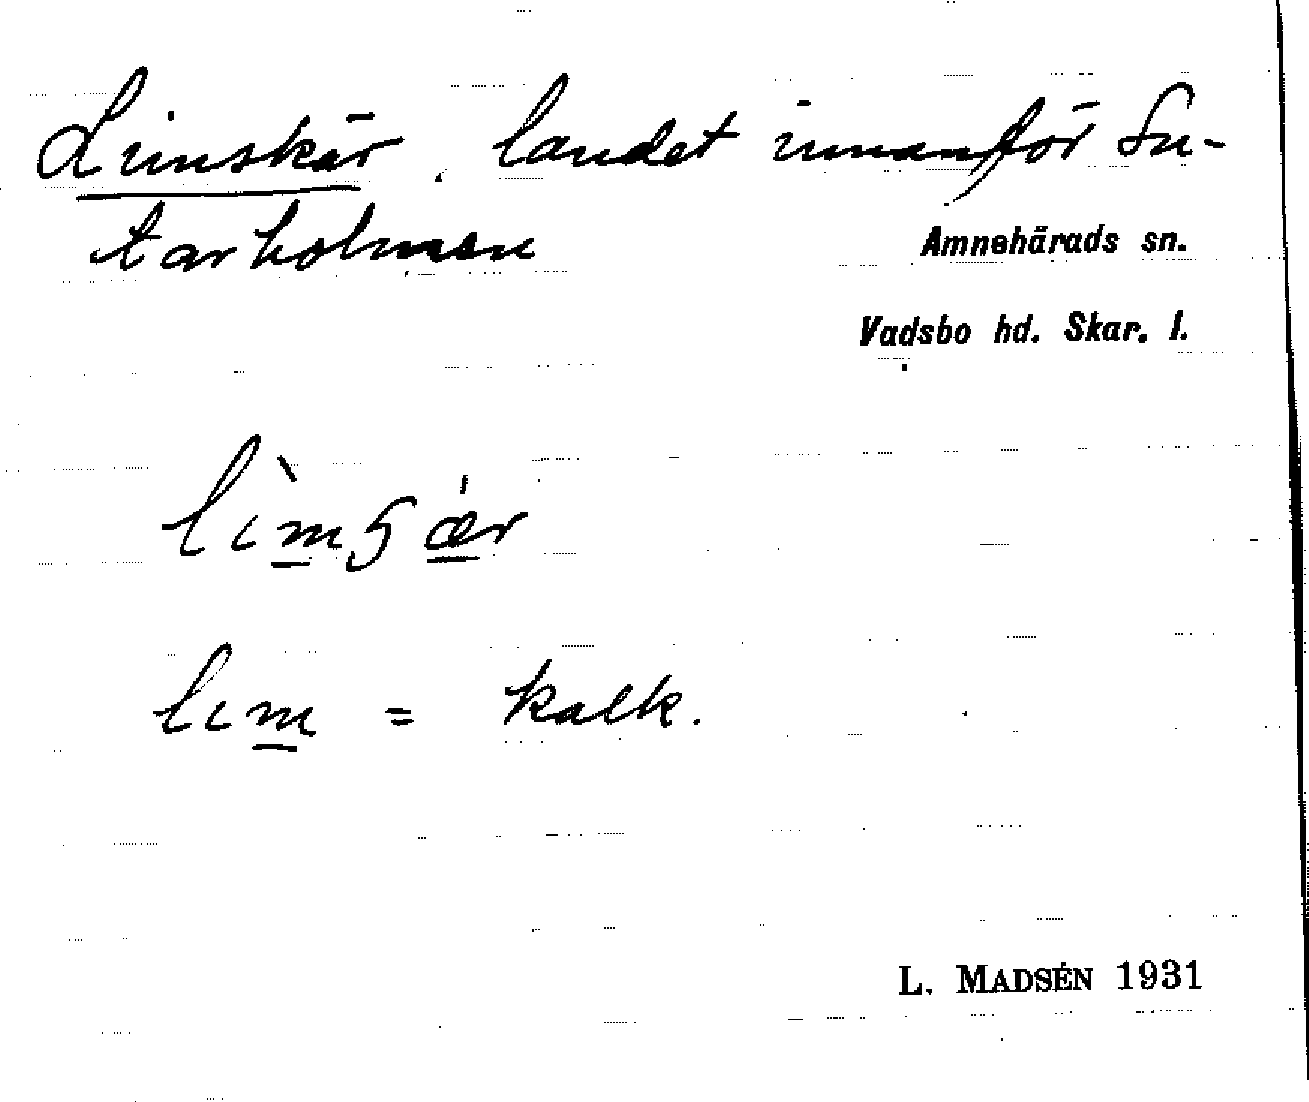 Limskär. landet innanför Su-
tarholmen
Amnehärads sn.
Vadsbo hd. Skar. l.
lìmʂǽr
lım = kalk.
L. MADSÉN 1931